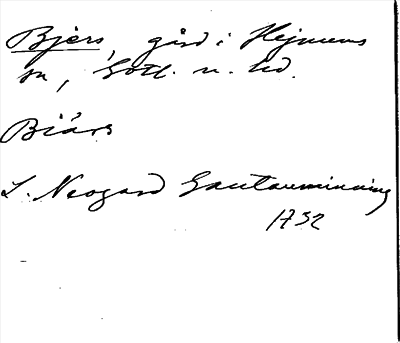 Bjers, gård i Hejnums
sn, Gotl. n. hd.
Biärs
L. Neogard Gautauminning
1732